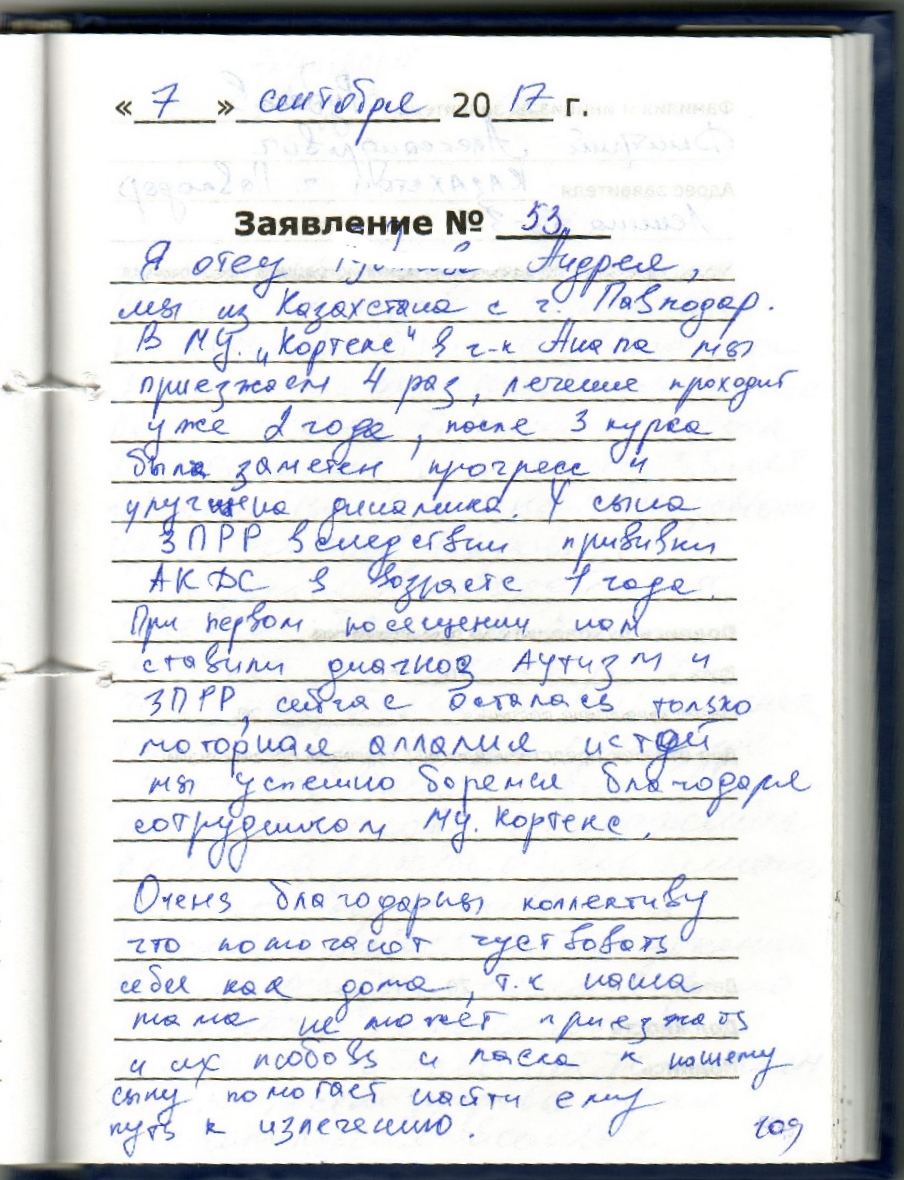 « 7 » сентября 20 17 г.
Заявление № 53
Я отец Андрея,
мы из Казахстана с г. Павлодар.
В МЦ. „Кортекс" в г-к Анапа мы
приезжаем 4 раз, лечение проходит
уже 2 года, после 3 курса
была заметен прогресс и
улучшена динамика. У сына
ЗПРР вследствии прививки
АКДС в возрасте 1 года.
При первом посещении нам
ставили диагноз Аутизм и
ЗПРР, сейчас осталась только
моторная аллалия истой
мы успешно боремся благодаря
сотрудникам МЦ. Кортекс.
Очень благодарны коллективу
что помогают чуствовать
себя как дома, т.к наша
мама не может приезжать
и их любовь и ласка к нашему
сыну помогает найти ему
путь к излечению.
109